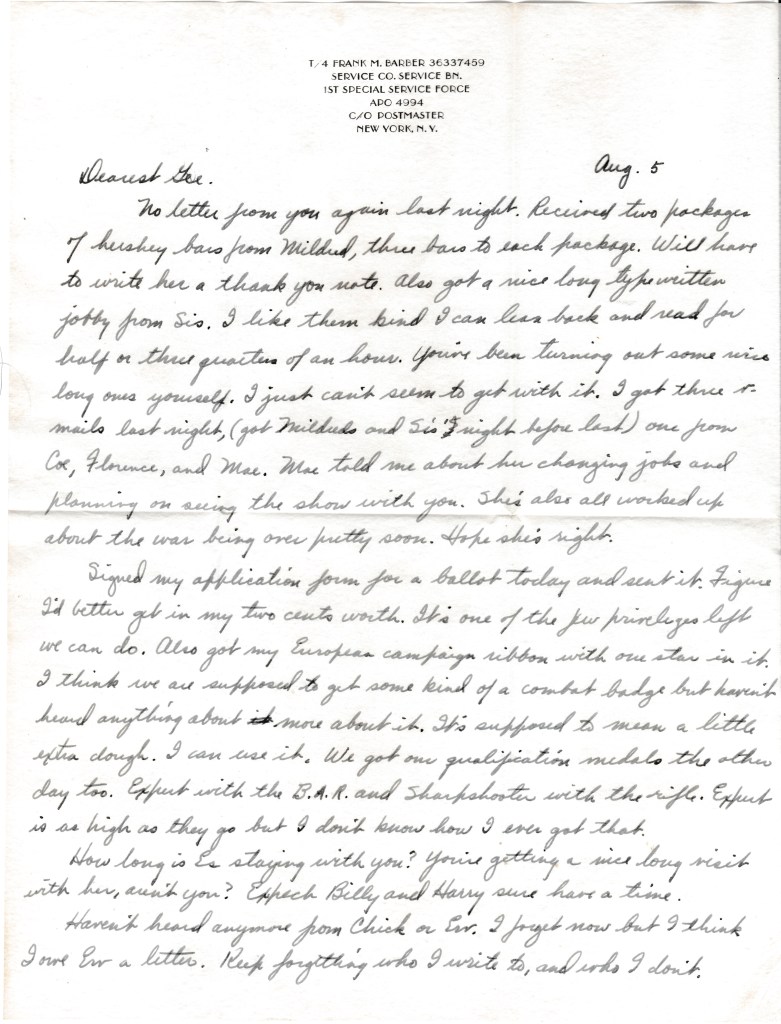 T/4 FRANK M. BARBER 36337459
SERVICE CO. SERVICE BN.
1ST SPECIAL SERVICE FORCE
APO 4994
C/O POSTMASTER
NEW YORK, N.Y.
Aug. 5
Dearest Gee.
No letter from you again last night. Received two packages
of hershey bars from Mildred, three bars to each package. Will have
to write her a thank you note. Also got a nice long typewritten
jobby from Sis. I like them kind I can lean back and read for
half or three quarters of an hour. You've been turning out some nice
long ones yourself. I just can't seem to get with it. I got three v-
mails last night, (got Mildreds and Sis's night before last) one from
Coe, Florence, and Mae. Mae told me about her changing jobs and
planning on seeing the show with you. She's also all worked up
about the war being over pretty soon. Hope she's right.
Signed my application form for a ballot today and sent it. Figure
I'd better get in my two cents worth. It's one of the few priveleges left
we can do. Also got my European campaign ribbon with one star in it.
I think we are supposed to get some kind of a combat badge but haven't
heard anything about it more about it. It's supposed to mean a little
extra dough. I can use it. We got our qualification medals the other
day too. Expert with the B.A.R. and Sharpshooter with the rifle. Expert
is as high as they go but I don't know how I ever got that.
How long is Es staying with you? You're getting a nice long visit
with her, aren't you? Expech Billy and Harry sure have a time.
Haven't heard anymore from Chick or Erv. I forget now but I think
I owe Erv a letter. Keep forgetting who I write to, and who I don't.